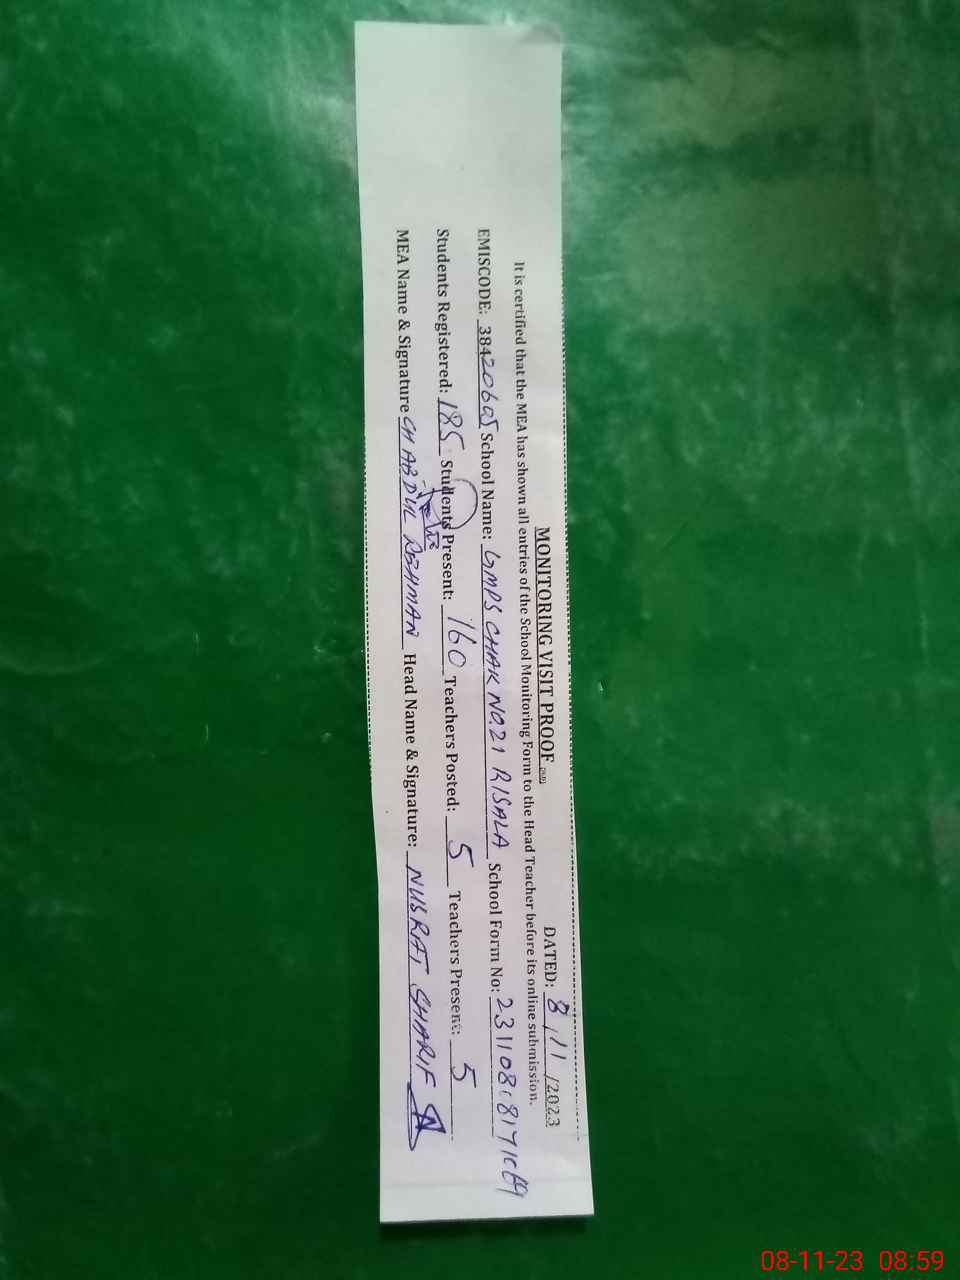 MONITORING VISIT PROOF
DATED: 8/11/2023
It is certified that the MEA has shown all entries of the School Monitoring Form to the Head Teacher before its online submission.
EMISCODE: 38420605 School Name: GMPS CHAK NO.21 RISALA School Form No:
Students Registered: 185 Students Present: 160 Teachers Posted: 5 Teachers Present: 5
MEA Name & Signature CH ABDUL REHMAN Head Name & Signature: NUSRAT SHARIF
08-11-23 08:59